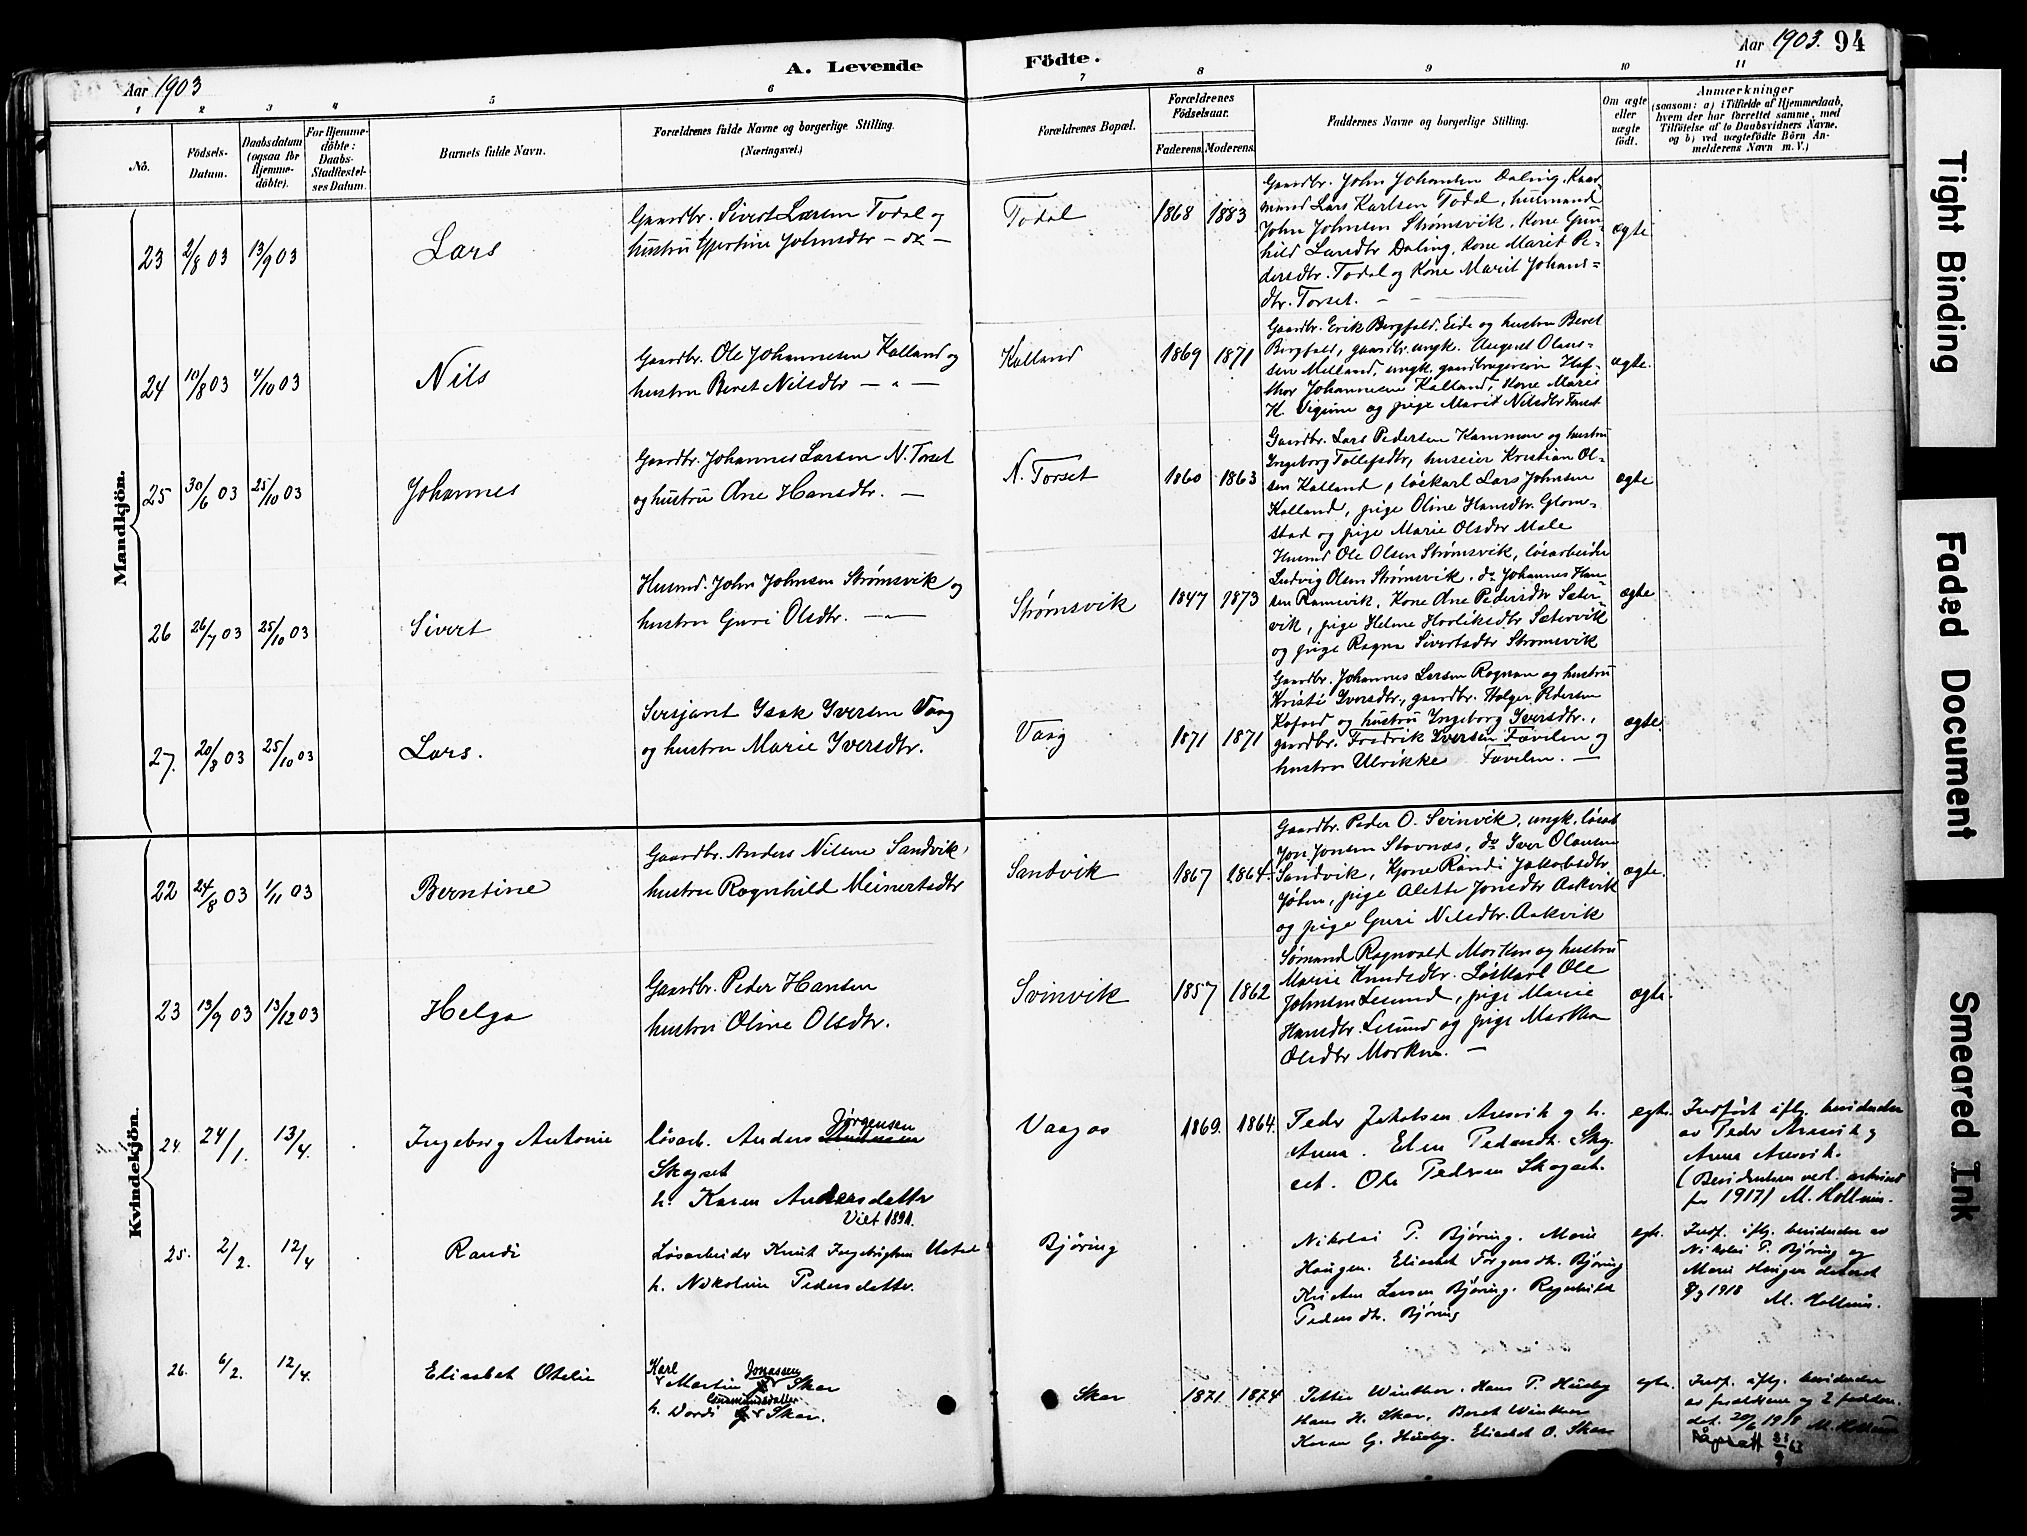 Aar 1903
A. Levende
Födte.
Aar 1903. 94
1 2 3 4 5 6 7 8 9 10 11
No.
Födsels-
Datum.
Daabsdatum
(ogsaa for
Hjemme-
döbte).
For Hjemme-
döbte:
Daabs-
Stadfæstel-
ses Datum.
Barnets fulde Navn.
Forældrenes fulde Navne og borgerlige Stilling.
(Næringsvei.)
Forældrenes Bopæl.
Forældrenes
Födselsaar.
Faderens. Moderens.
Faddernes Navne og borgerlige Stilling.
Om ægte
eller
uægte
födt.
Anmærkninger
(saasom: a) i Tilfælde af Hjemmedaab,
hvem der har forrettet samme, med
Tilföielse af to Daabsvidners Navne,
og b) ved uægtefödte Börn An-
melderens Navn m. V.)
Mandkjön.
23 2/8 03 13/9 03 Lars
Gaardbr. Sivert Larsen Todal og
hustru Johnsdtr — do —
Todal 1868 1883
Gaardbr. John Johansen Daling, Kaar-
mand Lars Karlsen Todal, husmand
John Johnsen Strømsvik, Kone Gun-
hild Larsdtr Daling, Kone Marit Pe-
dersdtr. Todal og Kone Marit Johans-
dtr. Torset. — —
ægte
24 10/8 03 4/10 03 Nils
Gaardbr. Ole Johannesen Kalland og
hustru Beret Nilsdtr — " —
Kalland 1869 1871
Gaardbr. Erik Bergfald, Eide og hustru Beret
Bergfald, gaardbr. ungk. August Olaus-
sen Melland, ungk. gaardbrugersøn Haf-
thor Johannesen Kalland, Kone Marit
K. og pige Marit Nilsdtr Torset
ægte.
25 30/6 03 25/10 03 Johannes
Gaardbr. Johannes Larsen N. Torset
og hustru Ane Hansdtr. —
N. Torset 1860 1863
Gaardbr. Lars Pedersen Kammen og hustru
Ingeborg Tollefsdtr, huseier Kristian Ol-
sen Kalland, løskarl Lars Johnsen
Kalland, pige Oline Hansdtr. Glom-
stad og pige Marie Olsdtr Male
ægte
26 26/7 03 25/10 03 Sivert
Husmd. John Johnsen Strømsvik og
hustru Guri Olsdtr. — " —
Strømsvik 1847 1873
Husmd Ole Olsen Strømsvik, løsarbeider
Ludvig Olsen Strømsvik, do Johannes Han-
sen Ramsvik, Kone Ane Pedersdtr Sæter-
vik, pige Helene Sætervik
og pige Ragna Sivertsdtr Strømsvik
ægte
27. 20/8 03 25/10 03 Lars.
Sersjant Isak Iversen Vaag
og hustru Marie Iversdtr.
Vaag 1871 1871
Gaardbr. Johannes Larsen Rognan og hustru
Kristi Iversdtr, gaardbr. Holger Pedersen
og hustru Ingeborg Iversdtr.,
gaardbr. Fredrik Iversen Fævelen og
hustru Ulrikke Fævelen. —
ægte.
Kvindekjön.
22 24/8 03 1/11 03 Berntine
Gaardbr. Anders Nilsen Sandvik,
hustru Ragnhild Meinertsdtr
Sandvik 1867 1864
Gaardbr. Peder O. Svinvik, ungk. løsarb
Jon Jonsen Stavnæs, do Iver Olausen
Sandvik, Kone Randi Jakobsdtr
pige Alette Jonsdtr Aakvik
og pige Guri Nilsdtr. Aakvik
ægte.
23 13/9 03 13/12 03 Helga
Gaardbr. Peder Hansen
hustru Oline Olsdtr.
Svinvik 1857 1862
Sømand Ragnvald og hustru
Marie Knudsdtr. Løskarl Ole
Johnsen Lesund, pige Marie
Hansdtr. Lesund og pige Marthe
Olsdtr —
ægte.
24. 24/1. 13/4. Ingeborg Antonie
løsarb. Anders Jørgensen
Skogset
h. Karen Andersdatter
Viet 1891.
Vaagos 1869. 1864.
Peder Jakobsen Aresvik og h.
Anna. Elen Pedersdt. Skog-
set. Ole Pedersen Skogset.
ægte.
Indført iflg. beviduelse
av Peder Aresvik og
Anna Aresvik.
(Bevidnelsen vedl. arkivet
for 1917) M. Hollum.
25. 2/2. 12/4 Randi
Løsarbeider Knut Ingebrigtsen
h. Nikoline Pedersdatter.
Bjøring . .
Nikolai P. Bjøring. Marie
Haugen. Elisabet Bjøring
Kristen Larsen Bjøring. Ragnhild
Pedersdtr. Bjøring
ægte.
Indf. iflg. bevidnelse av
Nikolai P. Bjøring og
Marie Haugen dateret
8/3 1918 M. Hollum.
26. 6/2. 12/4. Elisabet Otelie
Karl
Martin Jonassen Skar
Gudmundsdatter
h. Dordi G. Skar.
Skar 1871. 1874
Petter Winther. Hans P. Huseby
Hans H. Skar. Beret Winther
Karen G. Huseby. Elisabet O. Skar
ægte.
Indf. iflg. bevidnelse
av forældrene og 2 faddere
dat. 20/6 1918 M. Hollum
Tight Binding
Faded Document
Smeared Ink